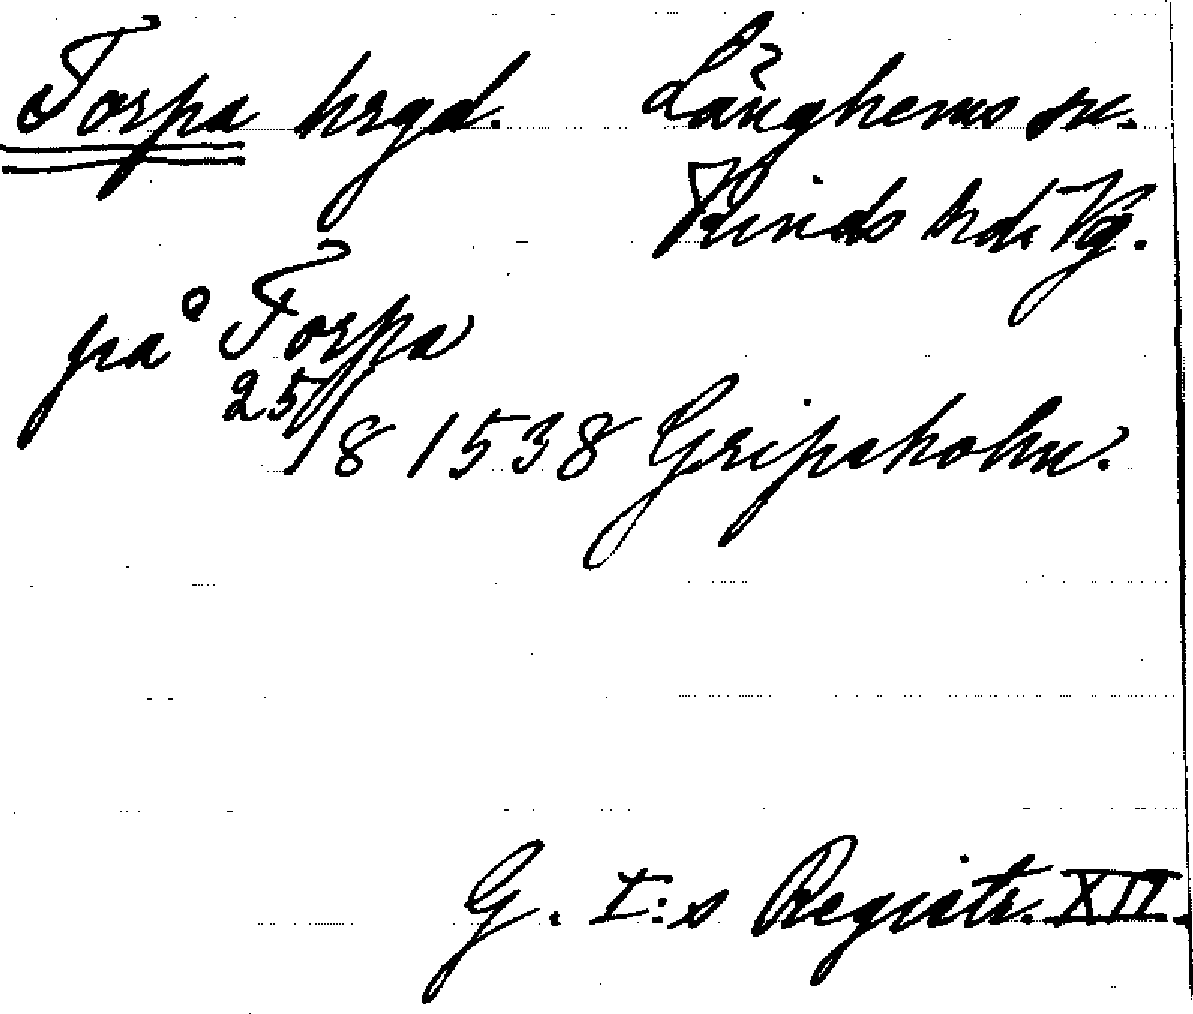 Torpa hrgd. Långhems sn.
Kinds hd. Vg.
på Torpa
25/8 1538 Gripsholm.
G. I:s Registr. XII.